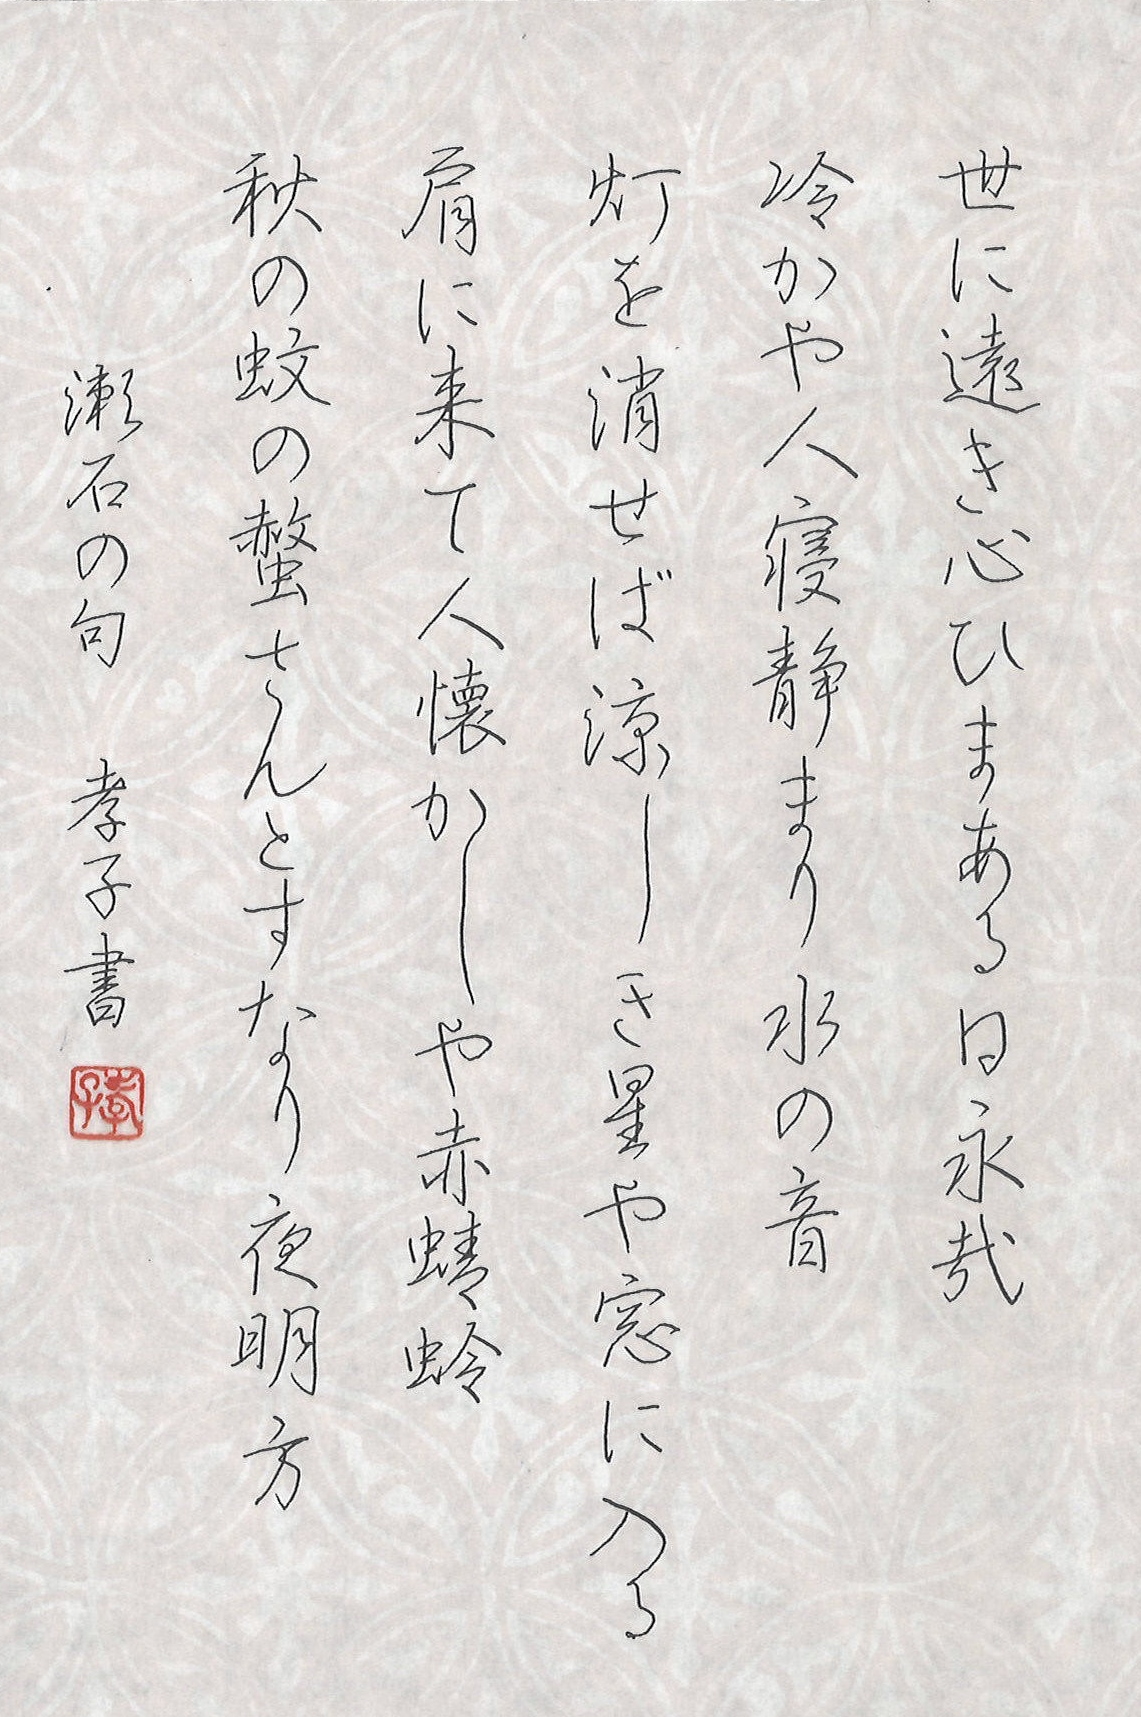 世に遠き心ひまある日永哉
冷かや人寝静まり水の音
灯を消せば涼しき星や窓に入る
肩に来て人懐かしや赤蜻蛉
秋の蚊の螫さんとすなり夜明方
漱石の句 孝子書
孝子